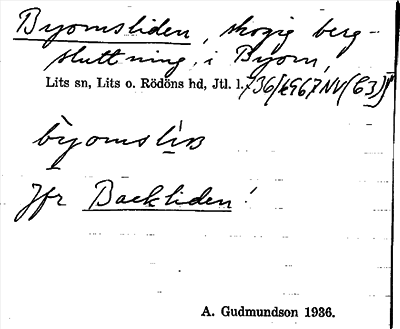 Byomsliden, skogig berg-
sluttning, i Byom,
Lits sn, Lits o. Rödöns hd, Jtl. l.
byomsliɴ
Jfr Backliden!
A. Gudmundson 1936.